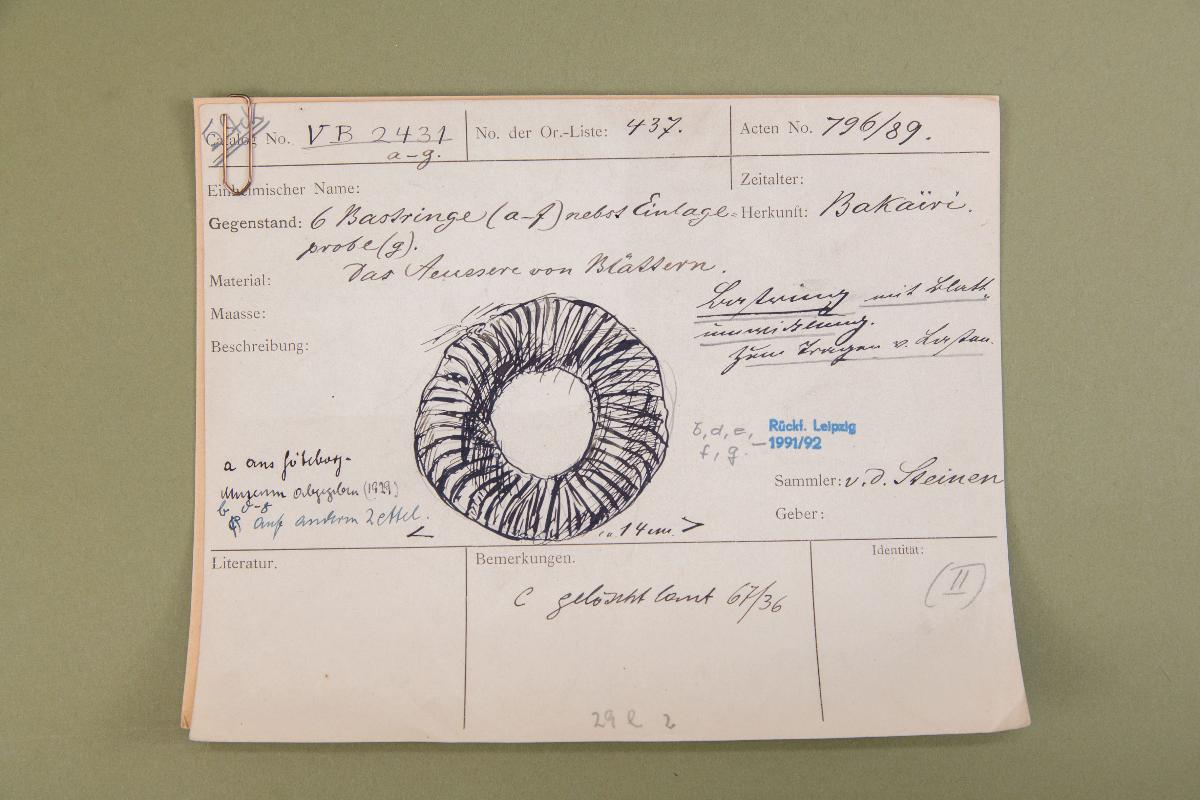 Catalog No. VB 2431
a-g.
No. der Or.-Liste: 437.
Acten No. 796/89.
Einheimischer Name:
Zeitalter:
Gegenstand: 6 Bastringe (a-f) nebst Einlage-
probe (g).
Herkunft: Bakäiri.
Material: Das Aeussere von Blättern.
Maasse:
Beschreibung:
Bastring mit Blatt-
umwicklung.
Zum Tragen v. Lasten.
b, d, e,
f, g. –
Rückf. Leipzig
1991/92
a ans Göteborg-
Museum abgegeben (1929)
b d-g
auf anderm Zettel.
Sammler: v. d. Steinen
Geber:
< ca 14 cm. >
Literatur.
Bemerkungen.
C gelöscht laut 67/36
Identität:
(II)
29 l 2